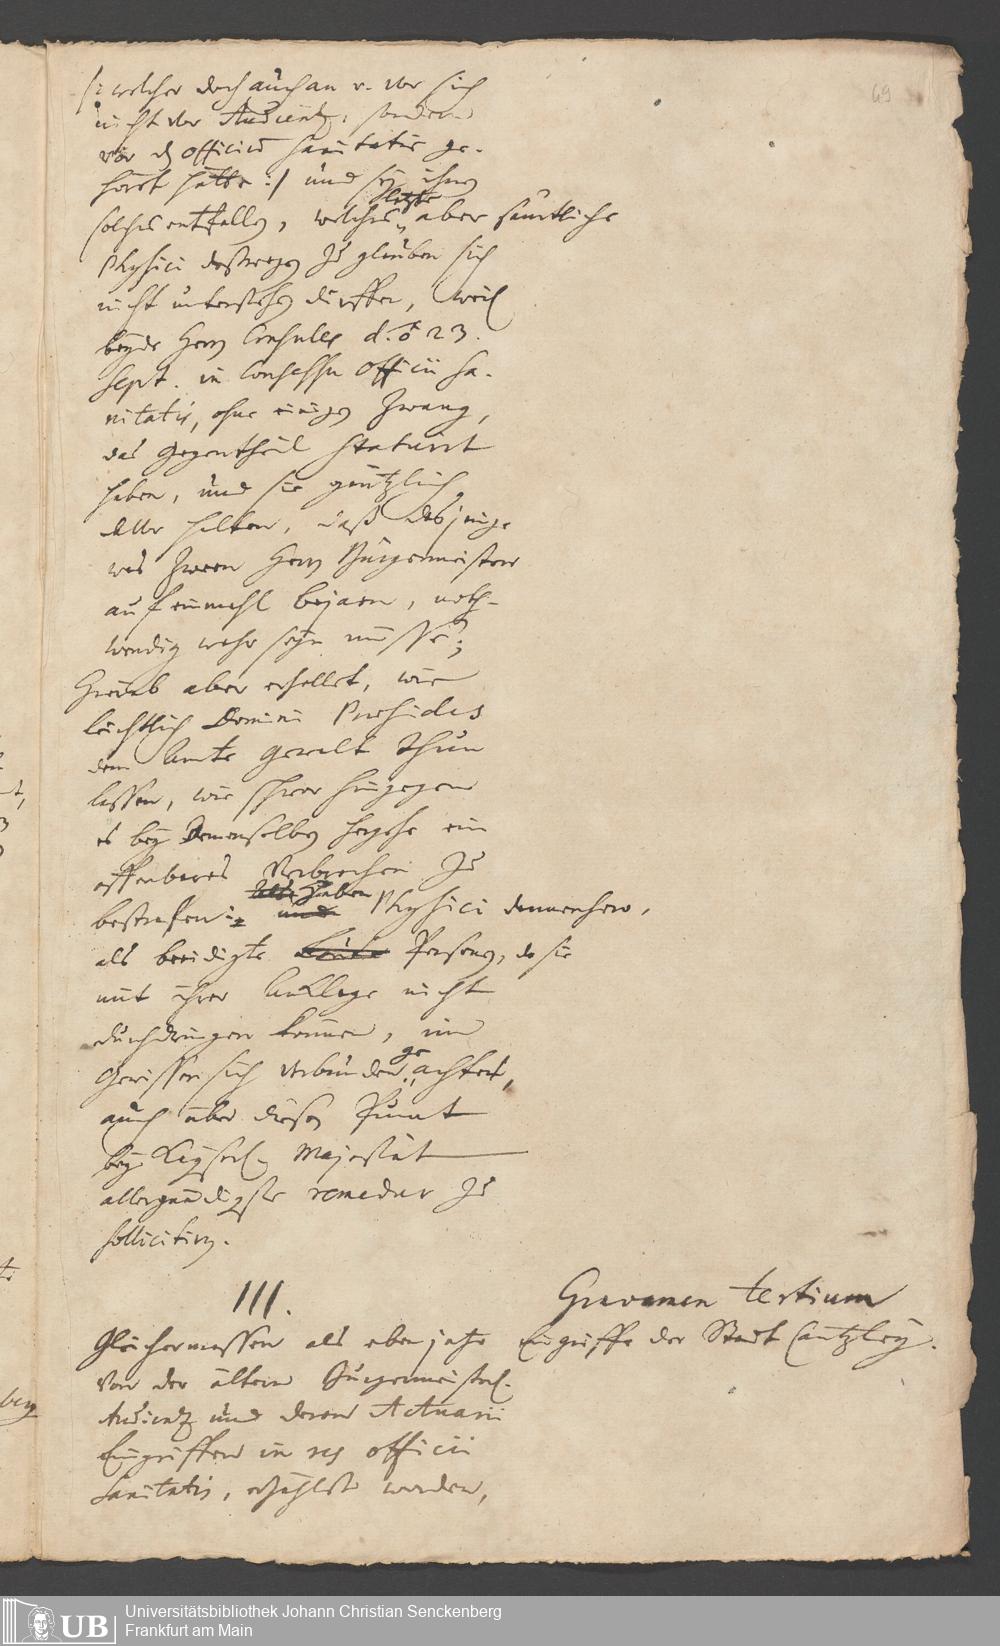 69
/: welcher doch auch an v. vor sich
nicht vor Audientz, sondern
vor dz officium sanitatis ge-
hört hätte :/ und sey ihnen
solches entfallen, welches letzte aber sämtliche
Physici deßwegen zu glauben sich
nicht unterstehen dürffen, weil
beyde Herrn Consules d. 23.
Sept. in Consessu Officii Sa-
nitatis, ohne einigen Zwang,
das Gegentheil statuirt
haben, und sie gäntzlich
davor halten, daß dasjenige
was zween Herrn Bürgermeistern
auf einmahl bejaen, noth-
wendig wahr seyn müsse;
Hierab aber erhellet, wie
leichtlich Domini Praesides
dem Amte Gewalt thun
lassen, wie schwer hingegen
es bey Demenselben hergehe ein
offenbares Verbrechen zu
bestrafen: haben Physici dannenhero,
als beeidigte Personen, da sie
mit ihrer Anklage nicht
durchdringen können, im
Gewissen sich verbunden geachtet,
auch über diesen Punct
bey Kayserl. Majestät
allergnädigste remedur zu
sollicitiren.
III.
Gravamen tertium
Eingriffe der Stadt Cantzley.
Gleichermassen als eben jetzo
von der ältern Bürgermeisterl.
Audientz und deren Actuarii
Eingriffen in res officii
Sanitatis, erzählet worden,
Universitätsbibliothek Johann Christian Senckenberg
Frankfurt am Main
UB